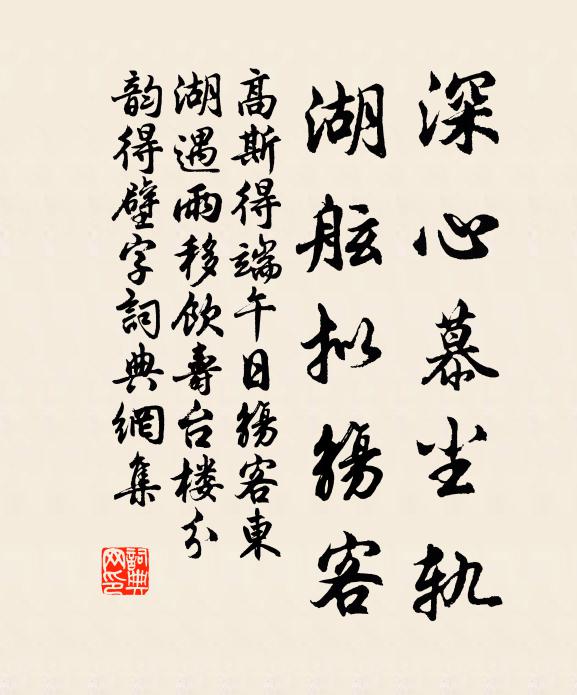 深心慕尘轨
湖舷拟觞客
高斯得端午日觞客東
湖遇雨移飲壽台楼分
韵得壁字詞典網集
詞典网印